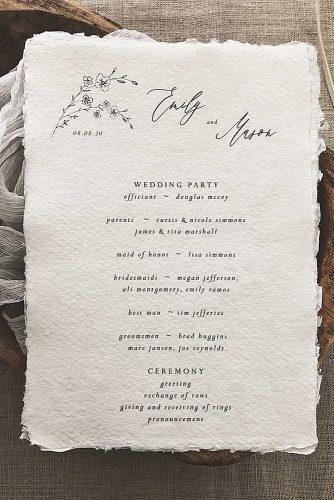 Emily
and
Mason
08.08.20
WEDDING PARTY
officiant ~ douglas mccoy
parents ~ curtis & nicole simmons
james & rita marshall
maid of honor ~ lisa simmons
bridesmaids ~ megan jefferson,
ali montgomery, emily ramos
best man ~ tim jefferies
groomsmen ~ brad huggins
marc jansen, joe reynolds
CEREMONY
greeting
exchange of vows
giving and receiving of rings
pronouncement